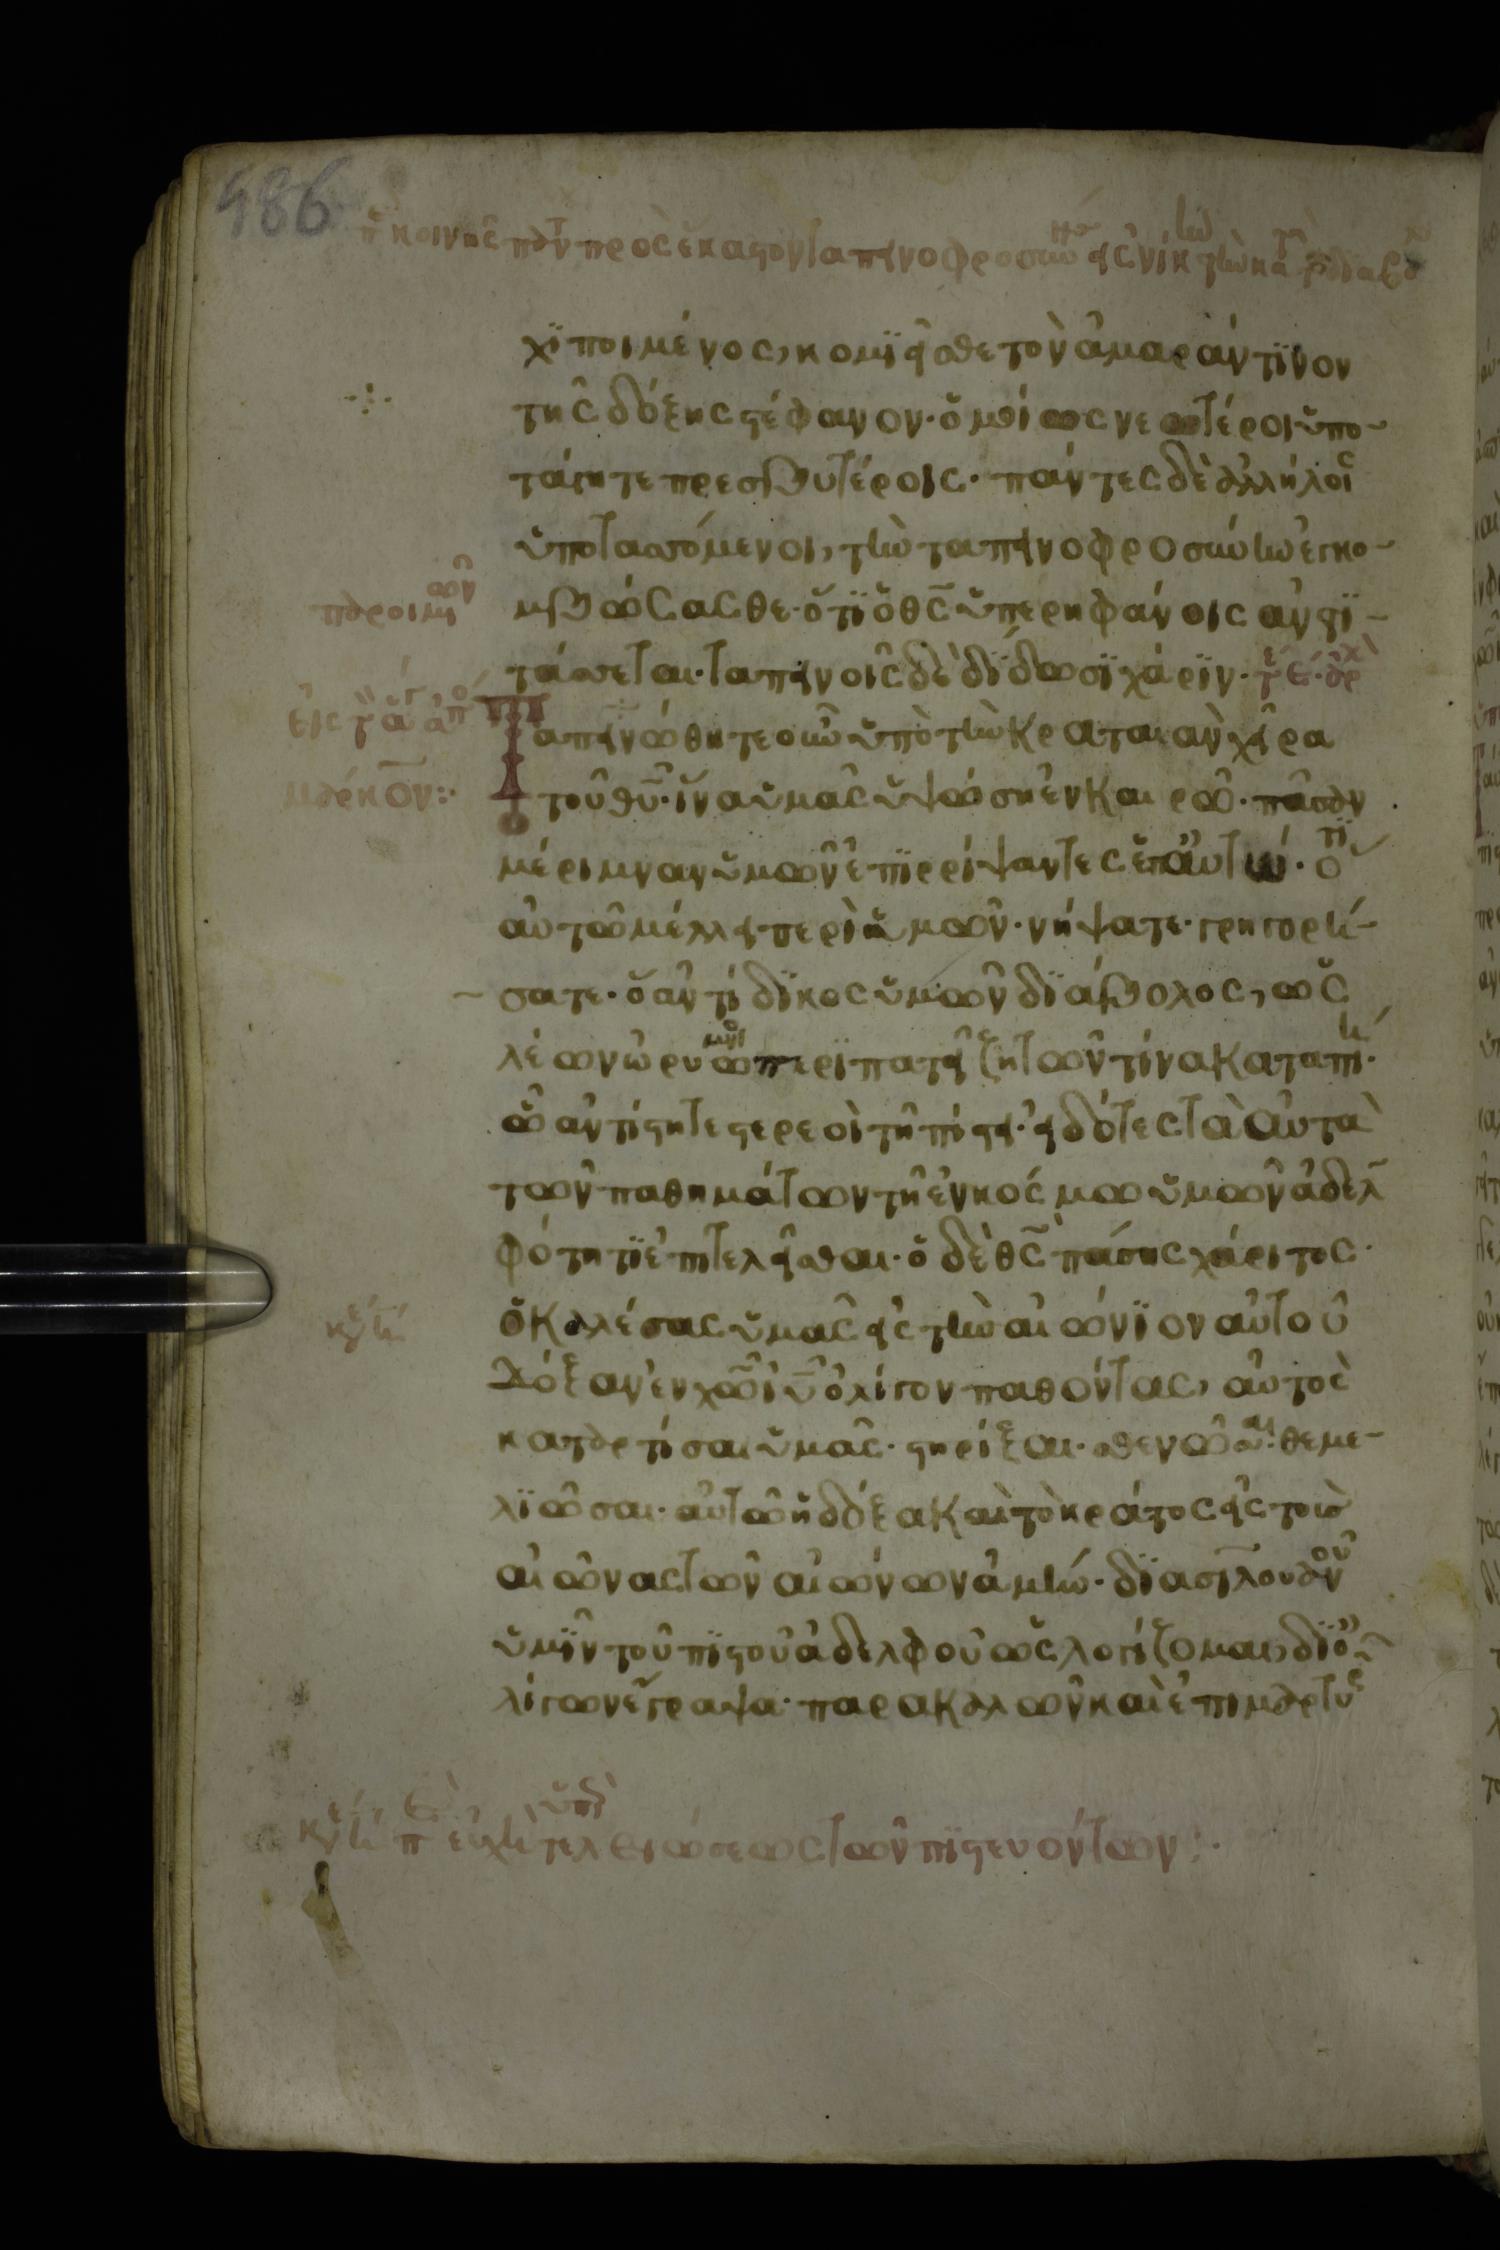 486
χϊ ποιμένος, κομϊεῖσθε τὸν ἀμαράντϊνον
τῆς δόξης στέφανον· ὁμοίως νεωτέροι ὑπο-
τάγητε πρεσβυτέροις· πάντες δὲ ἀλλήλοις
ὑποτασσόμενοι, τὴν ταπεινοφροσύνην ἐγκο-
μβώσασθε· ὅτϊ ὁ θς ὑπερηφάνοις ἀντϊ-
τάσσεται· ταπεινοῖς δὲ δϊδωσϊ χάρϊν·
Ταπεινώθητε οὖν ὑπὸ τὴν κραταιὰν χεῖρα
τοῦ θυ· ἵνα ὑμᾶς ὑψώση ἐν καιρῶ· πᾶσαν
μέριμναν ὑμῶν ἐπϊρρίψαντες ἐπ' αὐτόν· ὅτϊ
αὐτῶ μέλλει περὶ ὑμῶν· νήψατε· γρηγορή-
σατε· ὁ ἀντίδϊκος ὑμῶν δϊάβολος, ὡς
λέων ὠρυόμενος περϊπατεῖ ζητῶν τίνα καταπίη·
ὧ ἀντίστητε στερεοὶ τῆ πίστει· εἰδότες τὰ αὐτὰ
τῶν παθημάτων τῆ ἐν κόσμω ὑμῶν ἀδελ
φότητϊ ἐπιτελεῖσθαι· ὁ δὲ θς πάσης χάριτος·
ὁ καλέσας ὑμᾶς εἰς τὴν αἰώνϊον αὐτοῦ
δόξαν ἐν χω ιυ ὀλίγον παθόντας, αὐτὸς
καταρτίσαι ὑμᾶς· στηρίξαι· σθενῶσαι· θεμε-
λϊῶσαι· αὐτῶ ἡ δόξα καὶ τὸ κράτος εἰς τοὺς
αἰῶνας τῶν αἰώνων ἀμήν· δϊα σιλουανοῦ
ὑμῖν τοῦ πϊστοῦ ἀδελφοῦ ὡς λογίζομαι, δϊ' ὀ-
λίγων ἔγραψα· παρακαλῶν καὶ ἐπιμαρτυ
τελειώσεως τῶν πϊστευόντων:·